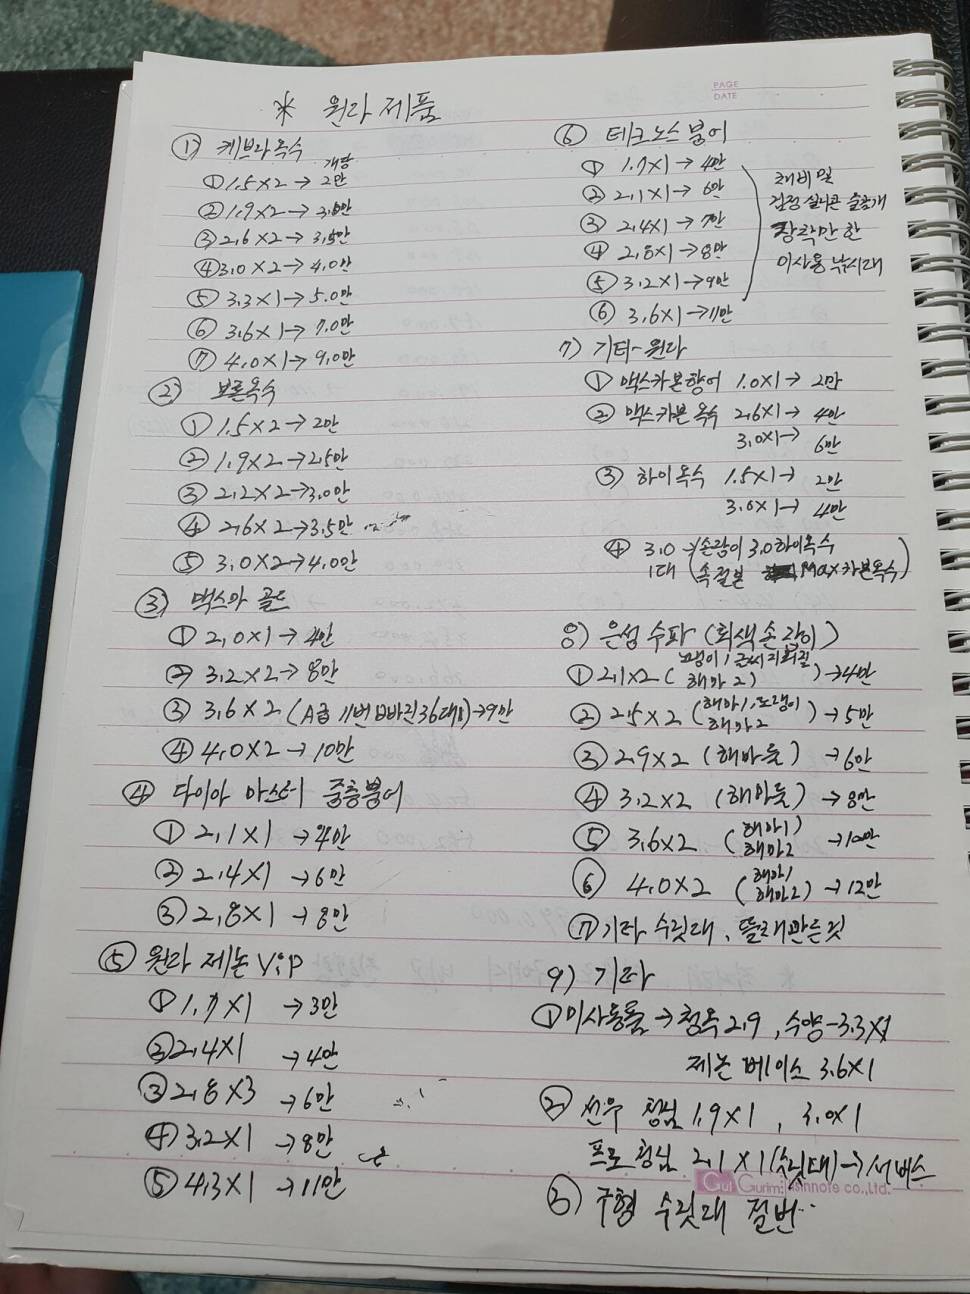 * 원다 제품
① 케브라옥수
개당
① 1.5×2→ 2만
② 1.9×2→ 3.0만
③ 2.6×2→ 3.5만
④ 3.0×2→ 4.0만
⑤ 3.3×1→ 5.0만
⑥ 3.6×1→ 7.0만
⑦ 4.0×1→ 9.0만
② 보론옥수
① 1.5×2→2만
② 1.9×2→2.5만
③ 2.2×2→3.0만
④ 2.6×2→3.5만
⑤ 3.0×2→4.0만
③ 맥스아 골드
① 2.0×1→4만
② 3.2×2→8만
③ 3.6×2 (A급 11번 빠진36대)→9만
④ 4.0×2→10만
④ 다이아 마스터 중층붕어
① 2.1×1→4만
② 2.4×1→6만
③ 2.8×1→8만
⑤ 원다 제논 VIP
① 1.7×1→3만
② 2.4×1→4만
③ 2.8×3→6만
④ 3.2×1→8만
⑤ 4.3×1→11만
PAGE
DATE
⑥ 테크노스붕어
① 1.7×1→4만
② 2.1×1→6만
③ 2.4×1→7만
④ 2.8×1→8만
⑤ 3.2×1→9만
⑥ 3.6×1→11만
채비 및
검정 실리콘 슬공개
장착만 한
미사용 낚시대
7) 기타-원다
① 맥스카본향어 1.0×1→ 2만
② 맥스카본 옥수 2.6×1→ 4만
3.0×1→ 6만
③ 하이옥수 1.5×1→ 2만
3.0×1→ 4만
④ 3.0→손잡이 3.0하이옥수
1대 (속절번 Max카본옥수)
8) 은성 수파 (회색손잡이)
① 2.1×2 (해마2)→4만
② 2.5×2 (해마1, 노랭이 해마2)→5만
③ 2.9×2 (해마들)→6만
④ 3.2×2 (해마들)→8만
⑤ 3.6×2 (해마1 해마2)→10만
⑥ 4.0×2 (해마1 해마2)→12만
⑦ 기타 수릿대, 뜰채만든것
9) 기타
① 미사용품→청옥2.9, 수양-3.3×1
제논 베이스 3.6×1
② 선우 청남 1.9×1, 3.0×1
프로 청남 2.1×1(수릿대)→서비스
Gurim
note co.,Ltd.
③ 구형 수릿대 절번..